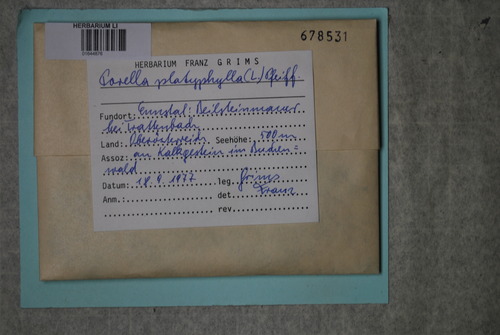 HERBARIUM LI
678531
HERBARIUM FRANZ GRIMS
Porella platyphylla (L.) Pfeiff.
Fundort: Ennstal:
bei
Land: Oberösterreich Seehöhe: 500m
Assoz: an Kalkgestein im Buchen=
wald
Datum: 18.9.1977 leg. Grims
Anm.: det. Franz
rev.